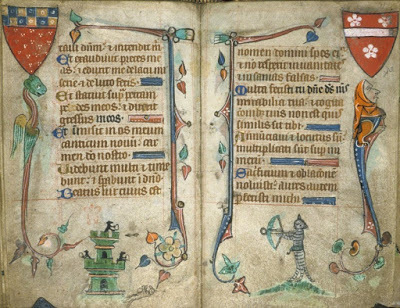 caut oīm: ⁊ intendit m̄
Et exaudivit preces me
as: ⁊ eduxit me de lacu mi
serie: ⁊ de luto fecis
Et statuit super petram
pedes meos: ⁊ direxit
gressus meos
Et immisit in os meum
canticum novum: car
men deo nostro
Videbunt multi ⁊ time
bunt: ⁊ sperabunt in dn̄o
Beatus vir cuius est
nomen domini spes ei
⁊ nō respexit in vanitates
⁊ insanias falsas
Multa fecisti tu dn̄e ds̄ ms̄
mirabilia tua: ⁊ cogita
cionibus tuis non est qui
similis sit tibi
Annuntiavi ⁊ locutus sū:
multiplicati sūt sup̄ nu
merū
Sacrificium ⁊ oblacionē
noluisti: aures autem
perfecisti michi